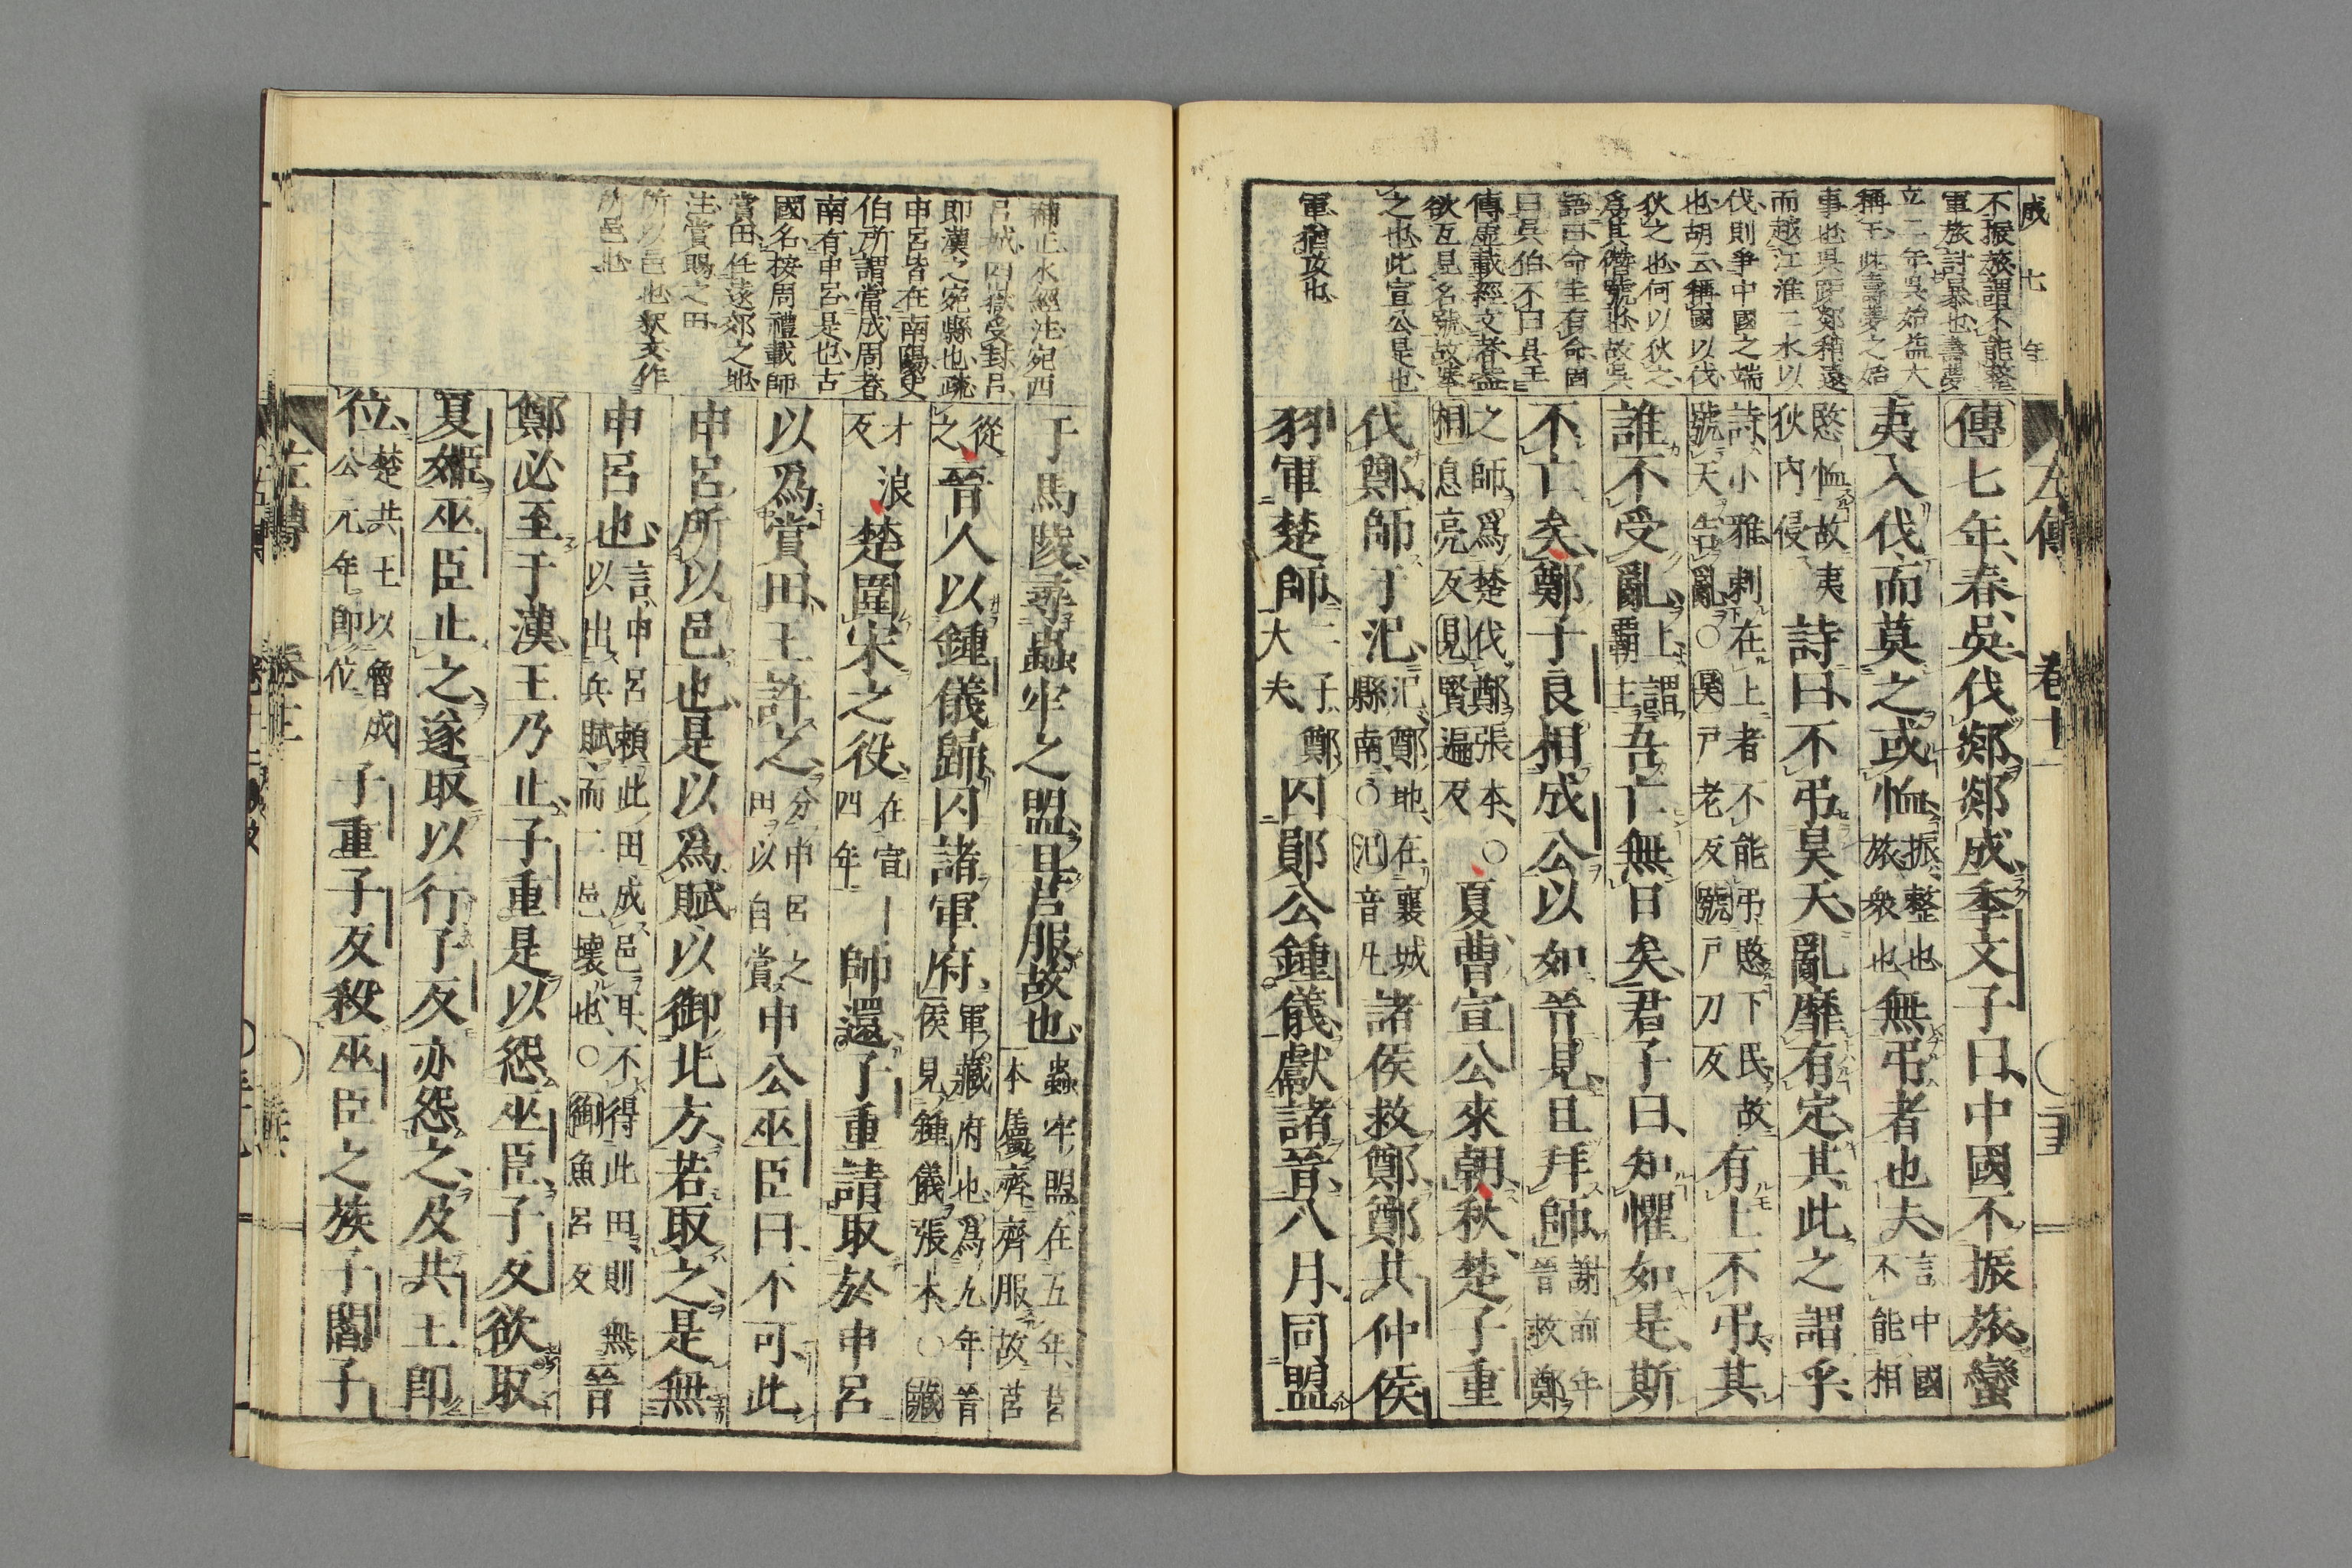 成七年
不振旅謂不能整
軍旅討暴也壽夢
立二年吳始益大
稱王此壽夢之始
事也吳距郯稍遠
而越江淮二水以
伐則爭中國之端
也胡云稱國以伐
狄之也何以狄之
爲其僭號也故吳
語曰命圭有命固
曰吳伯不曰吳王
傳虛載經文者蓋
欲互見名號故
之也此宣公是也
軍猶攻也
傳七年春吳伐郯郯成季文子曰中國不振旅蠻
夷入伐而莫之或恤振整也旅衆也無弔者也夫言中國不能相
愍恤故夷狄內侵詩曰不弔昊天亂靡有定其此之謂乎
詩小雅刺在上者不能弔愍下民故號天告亂○昊戸老反號戸刀反有上不弔其
誰不受亂上謂霸主吾亡無日矣君子曰知懼如是斯
不亡矣鄭子良相成公以如晉見且拜師謝前年晉救鄭
之師爲楚伐鄭張本○相息亮反見賢遍反夏曹宣公來朝秋楚子重
伐鄭師于氾氾鄭地在襄城縣南○氾音凡諸侯救鄭鄭共仲侯
羽軍楚師二子鄭大夫囚鄖公鍾儀獻諸晉八月同盟
補正水經注宛西
呂城四嶽受封呂
即漢之宛縣也疏
申呂皆在南陽史
伯所謂當成周者
南有申呂是也古
國名按周禮載師
賞田任遠郊之地
注賞賜之田
所以邑也狄文作
所邑也
于馬陵尋蟲牢之盟且莒服故也蟲牢盟在五年莒本屬齊齊服故莒
從之晉人以鍾儀歸囚諸軍府軍藏府也爲九年晉侯見鍾儀張本○藏
才浪反楚圍宋之役在宣四年師還子重請取於申呂
以爲賞田王許之分申呂之田以自賞申公巫臣曰不可此
申呂所以邑也是以爲賦以御北方若取之是無
申呂也言申呂賴此田成邑耳不得此田則無以出兵賦而二邑壞也○御魚呂反晉
鄭必至于漢王乃止子重是以怨巫臣子反欲取
夏姬巫臣止之遂取以行子反亦怨之及共王卽
位楚共王以魯成公元年卽位子重子反殺巫臣之族子閻子
左傳